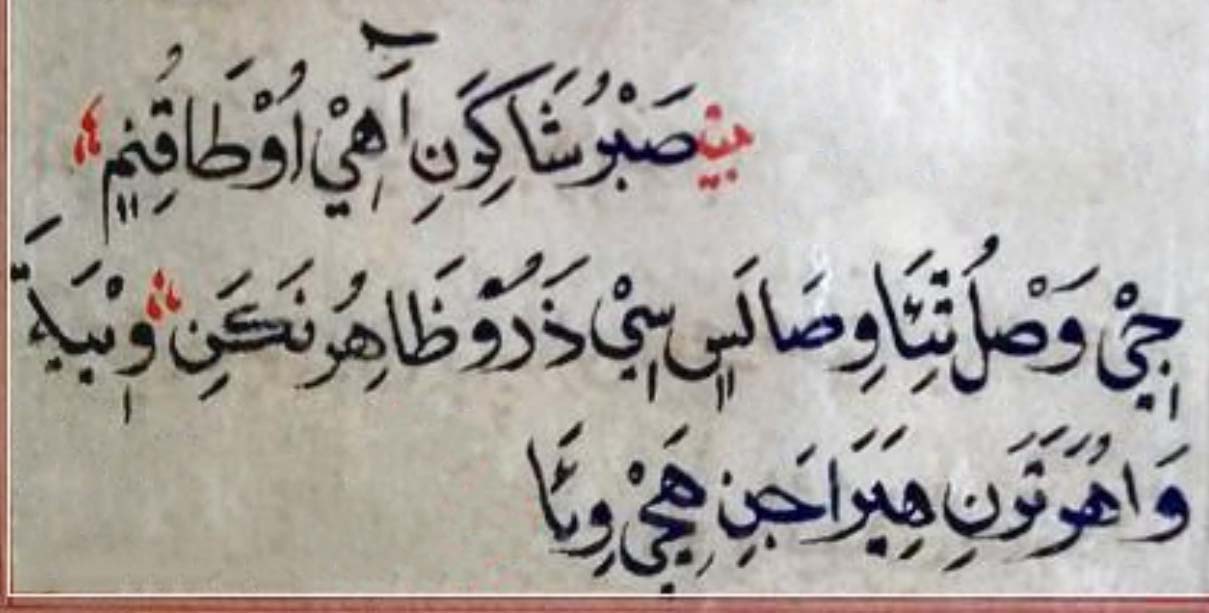 بيت صَبْرُ شَاكِوَنِ آهِيْ اُوْطَاقُنِمٖ
جٖيْ وَصْلُ تِئَا وِصَالَسٖ سٖيْ ذَرُوْ ظَاهِرُ نَڪَنِ وٖيْبَيَہٖ
وَاهُوَتَوَنِ هِيَرَا جَنِ هَجٖيْ وِئَا